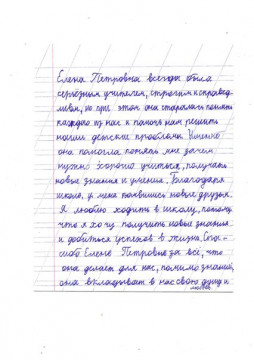 Елена Петровна всегда была
серьёзным учителем, строгим и справед
ливым, но при этом она старалась понять
каждого из нас и помочь нам решить
наши детские проблемы. Именно
она помогла понять мне зачем
нужно хорошо учиться, получать
новые знания и умения. Благодаря
школе, у меня появились новые друзья.
Я люблю ходить в школу, потому
что я хочу получить новые знания
и добиться успехов в жизни. Спа-
сибо Елене Петровне за всё, что
она делает для нас, помимо знаний,
она вкладывает в нас свою душу и